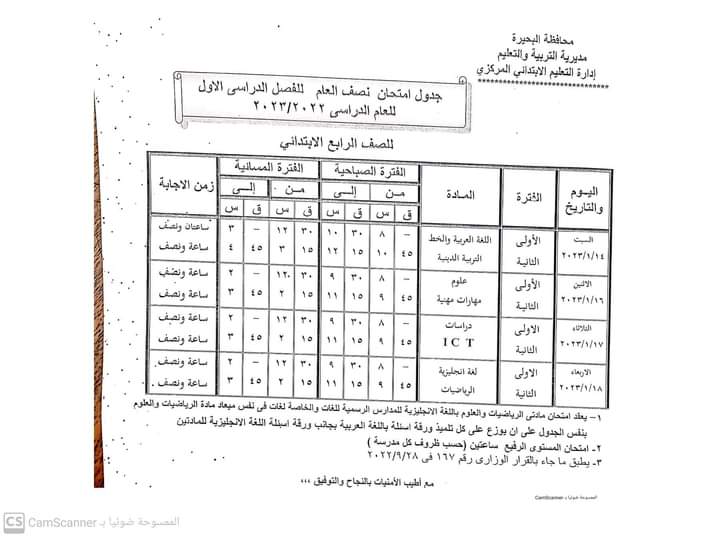 محافظة البحيرة
مديرية التربية والتعليم
إدارة التعليم الابتدائي المركزي
*******************************
جدول امتحان نصف العام للفصل الدراسى الاول
للعام الدراسى ٢٠٢٣/٢٠٢٢
للصف الرابع الابتدائي
اليوم والتاريخ | الفترة | المادة | الفترة الصباحية | الفترة المسائية | زمن الاجابة
مـن | إلـى | مـن | إلـى
ق | س | ق | س | ق | س | ق | س
السبت ٢٠٢٣/١/١٤ | الأولى | اللغة العربية والخط | – | ٨ | ٣٠ | ١٠ | ٣٠ | ١٢ | – | ٣ | ساعتان ونصف
الثانية | التربية الدينية | ٤٥ | ١٠ | ١٥ | ١٢ | ١٥ | ٣ | ٤٥ | ٤ | ساعة ونصف
الاثنين ٢٠٢٣/١/١٦ | الأولى | علوم | – | ٨ | ٣٠ | ٩ | ٣٠ | ١٢ | – | ٢ | ساعة ونصف
الثانية | مهارات مهنية | ٤٥ | ٩ | ١٥ | ١١ | ١٥ | ٢ | ٤٥ | ٣ | ساعة ونصف
الثلاثاء ٢٠٢٣/١/١٧ | الاولى | دراسات | – | ٨ | ٣٠ | ٩ | ٣٠ | ١٢ | – | ٢ | ساعة ونصف
الثانية | I C T | ٤٥ | ٩ | ١٥ | ١١ | ١٥ | ٢ | ٤٥ | ٣ | ساعة ونصف
الاربعاء ٢٠٢٣/١/١٨ | الاولى | لغة انجليزية | – | ٨ | ٣٠ | ٩ | ٣٠ | ١٢ | – | ٢ | ساعة ونصف
الثانية | الرياضيات | ٤٥ | ٩ | ١٥ | ١١ | ١٥ | ٢ | ٤٥ | ٣ | ساعة ونصف
١– يعقد امتحان مادتى الرياضيات والعلوم باللغة الانجليزية للمدارس الرسمية للغات والخاصة لغات فى نفس ميعاد مادة الرياضيات والعلوم
بنفس الجدول على ان يوزع على كل تلميذ ورقة اسئلة باللغة العربية بجانب ورقة اسئلة اللغة الانجليزية للمادتين
٢- امتحان المستوى الرفيع ساعتين (حسب ظروف كل مدرسة )
٣- يطبق ما جاء بالقرار الوزارى رقم ١٦٧ فى ٢٠٢٢/٩/٢٨
مع أطيب الأمنيات بالنجاح والتوفيق ،،،
الممسوحة ضوئيا بـ CamScanner
CS CamScanner الممسوحة ضوئيا بـ